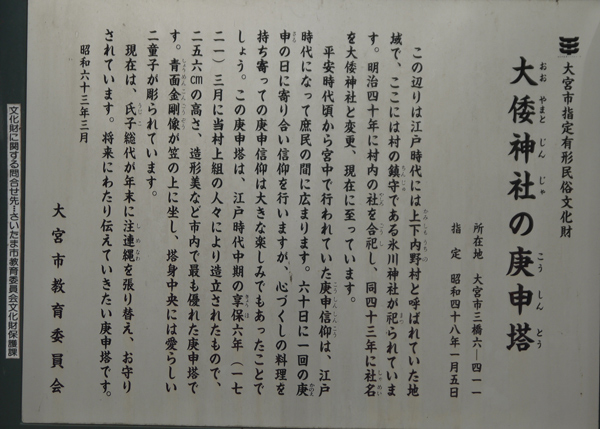 大宮市指定有形民俗文化財
大倭神社の庚申塔
おお やまと じん じゃ こう しん とう
所在地 大宮市三橋六―四一一
指定 昭和四十八年一月五日
この辺りは江戸時代には上下内野村と呼ばれていた地
域で、ここには村の鎮守である氷川神社が祀られていま
す。明治四十年に村内の社を合祀し、同四十三年に社名
を大倭神社と変更、現在に至っています。
平安時代頃から宮中で行われていた庚申信仰は、江戸
時代になって庶民の間に広まります。六十日に一回の庚
申の日に寄り合い信仰を行いますが、心づくしの料理を
持ち寄っての庚申信仰は大きな楽しみでもあったことで
しょう。この庚申塔は、江戸時代中期の享保六年（一七
二一）三月に当村上組の人々により造立されたもので、
二五六㎝の高さ、造形美など市内で最も優れた庚申塔で
す。青面金剛像が笠の上に坐し、塔身中央には愛らしい
二童子が彫られています。
現在は、氏子総代が年末に注連縄を張り替え、お守り
されています。将来にわたり伝えていきたい庚申塔です。
昭和六十三年三月
大宮市教育委員会
文化財に関する問合せ先…さいたま市教育委員会文化財保護課